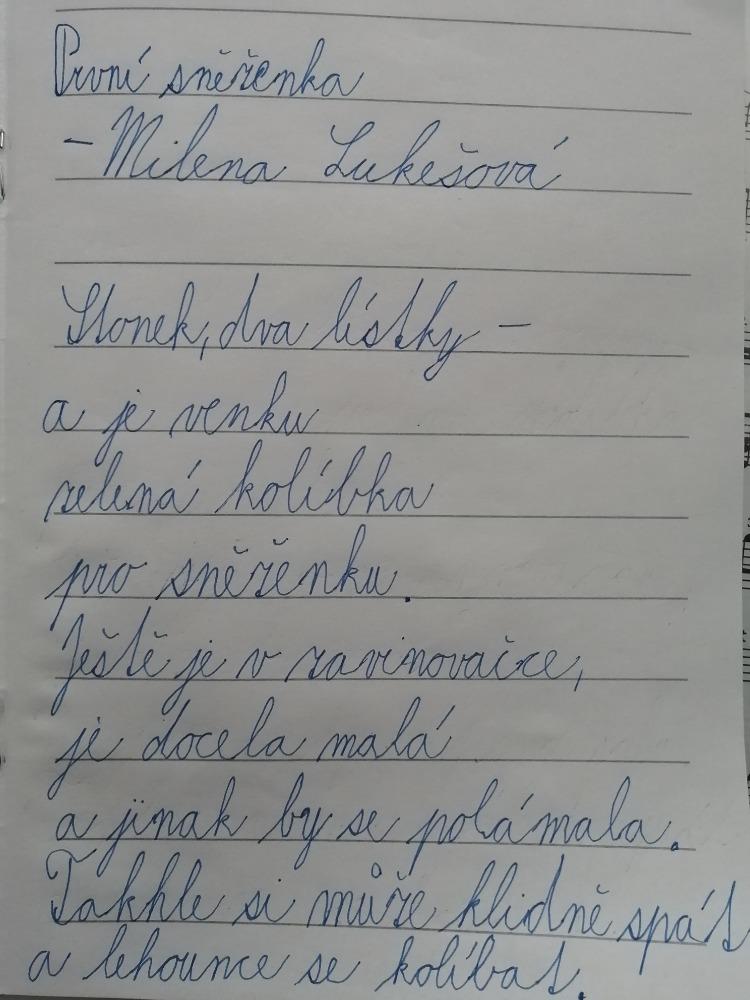 První sněženka
- Milena Lukešová
Stonek, dva lístky -
a je venku
zelená kolíbka
pro sněženku.
Ještě je v zavinovačce,
je docela malá
a jinak by se polámala.
Takhle si může klidně spát
a lehounce se kolíbat.